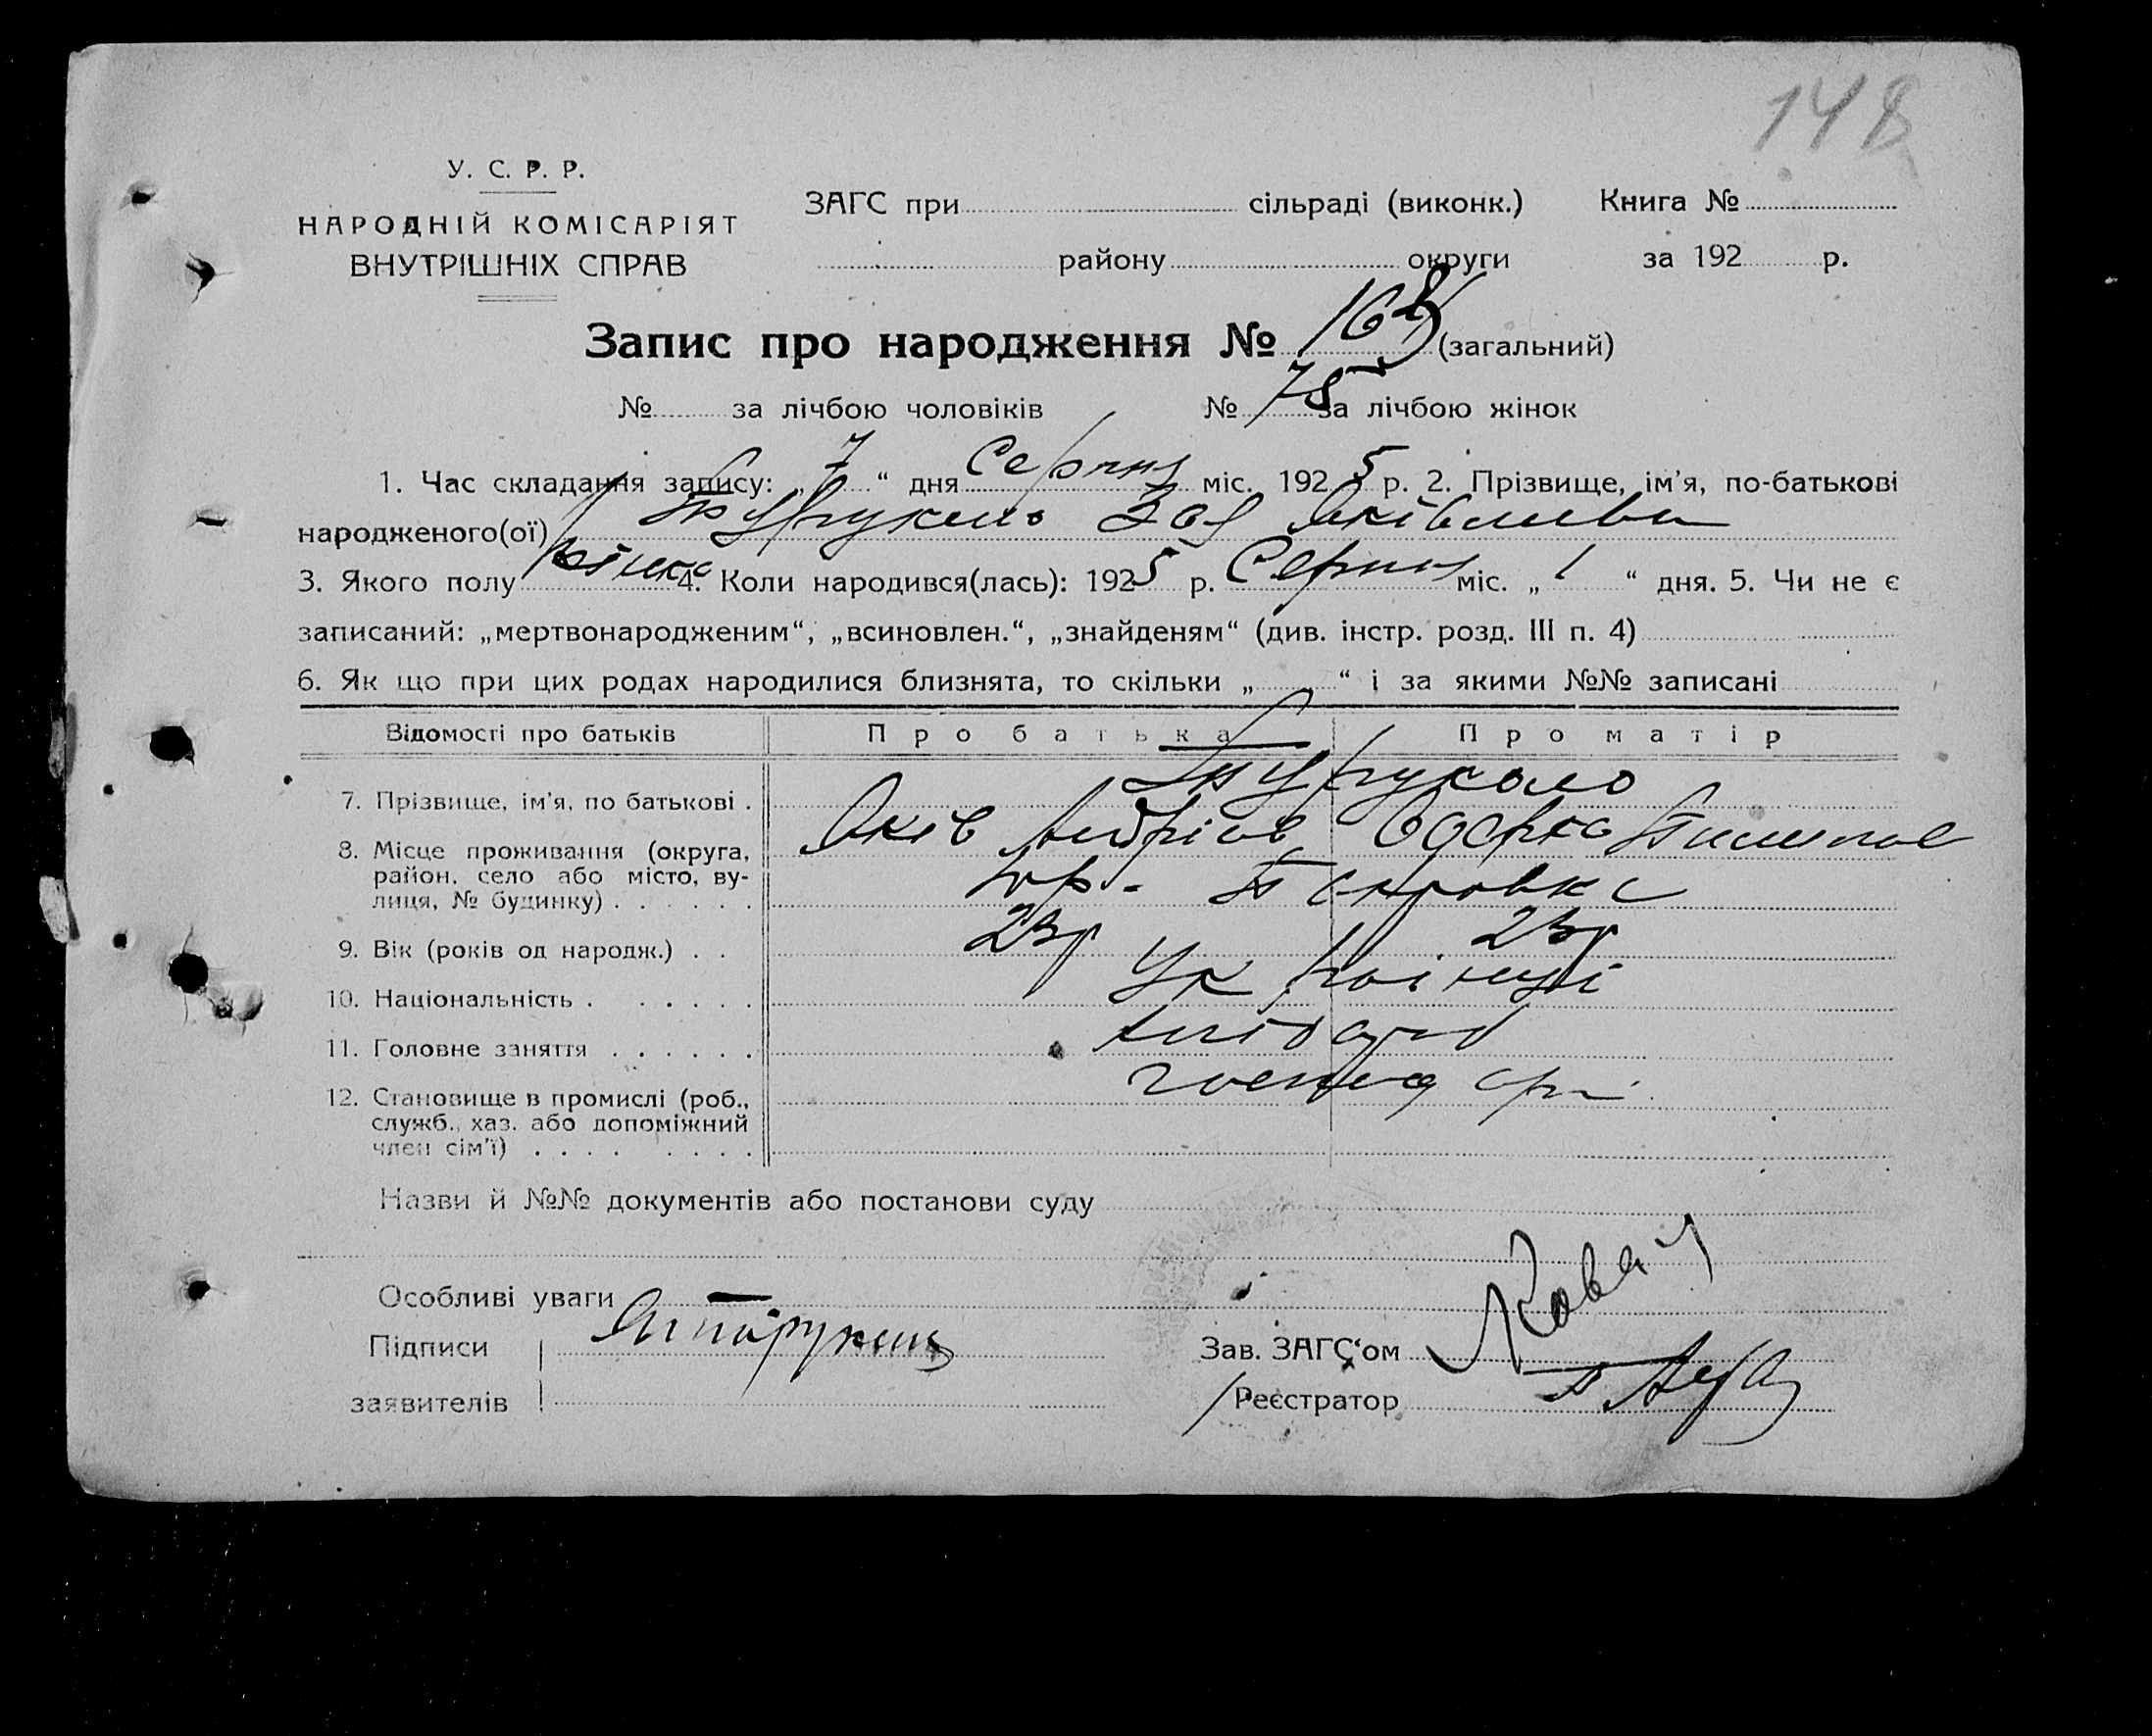 148
У. С. Р. Р.
НАРОДНІЙ КОМІСАРІЯТ
ВНУТРІШНІХ СПРАВ
ЗАГС при сільраді (виконк.) Книга №
району округи за 192 р.
Запис про народження № 168 (загальний)
№ за лічбою чоловіків № 78 за лічбою жінок
1. Час складання запису: „7“ дня Серпня міс. 1925 р. 2. Прізвище, ім'я, по-батькові
народженого(ої) Зоя Яківлівна
3. Якого полу жіноч 4. Коли народився(лась): 1925 р. Серпня міс. „1“ дня. 5. Чи не є
записаний: „мертвонародженим“, „всиновлен.“, „знайденям“ (див. інстр. розд. III п. 4)
6. Як що при цих родах народилися близнята, то скільки „ “ і за якими №№ записані
Відомості про батьків Про батька Про матір
7. Прізвище, ім'я, по батькові .
Яків Андріев Одарка Пилипов
8. Місце проживання (округа,
район, село або місто, ву-
лиця, № будинку) . . . . . .
Покровка
9. Вік (років од народж.) . . 23р 23р
10. Національність . . . . . . Українці
11. Головне заняття . . . . . . хлібороб
12. Становище в промислі (роб.,
служб., хаз. або допоміжний
член сім'ї) . . . . . . . .
господар
Назви й №№ документів або постанови суду
Особливі уваги
Підписи
заявителів
Зав. ЗАГС'ом Коваль
Реєстратор